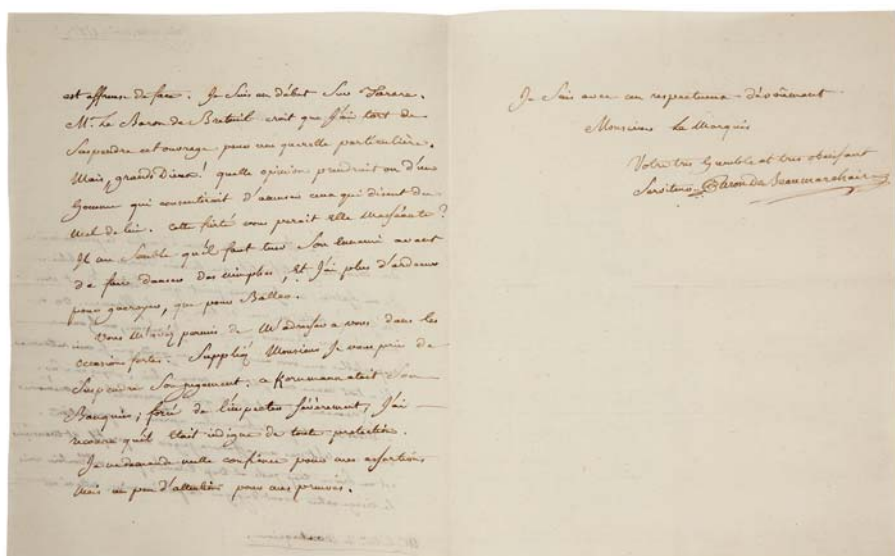 est affreuse de faux. Je suis en débat sur Tarare.
Mr. Le Baron de Breteuil croit que j'ai tort de
suspendre cet ouvrage pour une querelle particulière.
Mais, grands Dieux! quelle opinion prendrait on d'un
homme qui consentirait d'amuser ceux qui disent du
mal de lui. Cette fierté vous parait elle messéante?
Il me semble qu'il faut tuer son ennemi avant
de faire danser des nimphes, et j'ai plus d'ardeur
pour guerroyer, que pour Baller.
Vous m'avez permis de m'adresser a vous dans les
occasions fortes. Suppliez Monsieur je vous prie de
suspendre son jugement. ce Kornmann etait son
Banquier; forcé de l'inspecter sévèrement, j'ai
reconnu qu'il était indigne de toute protection.
Je ne demande nulle confiance pour mes assertions
mais un peu d'attention pour mes preuves.
Je suis avec un respectueux dévouement
Monsieur Le Marquis
Votre très humble et très obéissant
Serviteur Caron De Beaumarchais